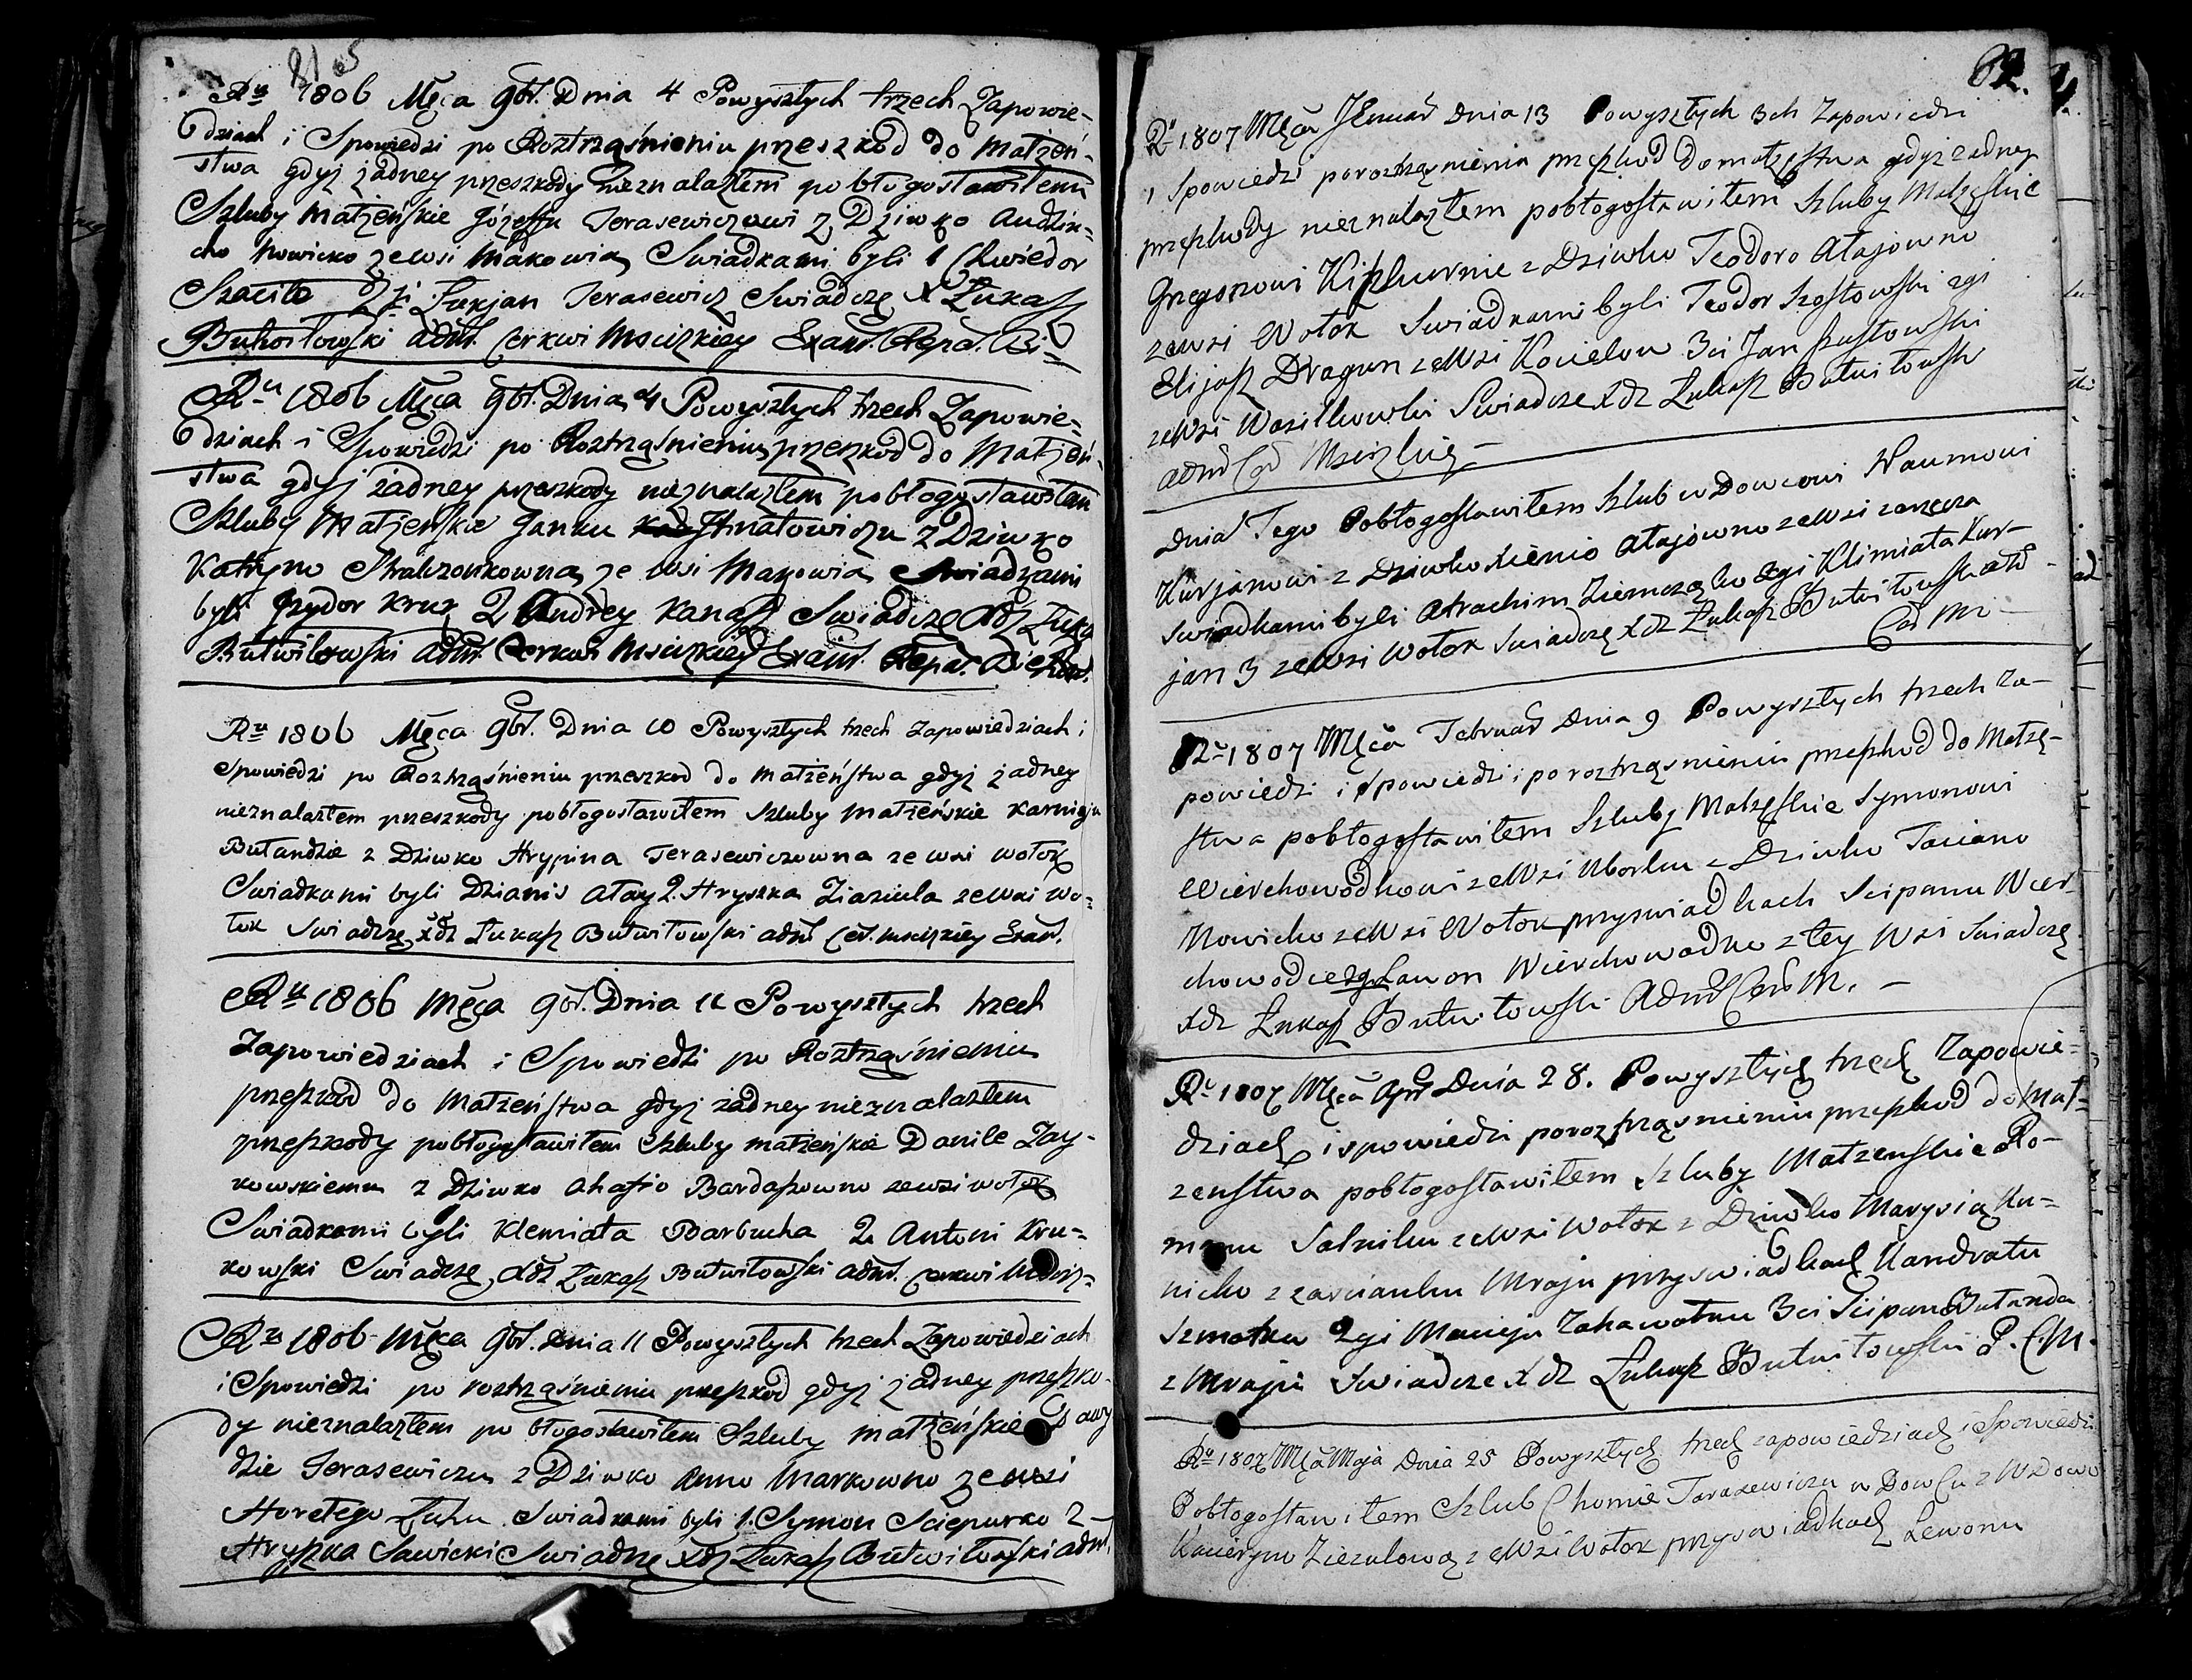 81 5
Ru 1806 Męca 9br. Dnia 4 Powyszłych trzech Zapowie-
dziach i Spowiedzi po Roztrząśnieniu przeszkod do Matżeń-
stwa gdyż żadney przeszkody nieznalazłem pobłogosławiłem
Szluby Matżeńskie Józeffu Terasewiczowi z Dziwko Audziu=
cho Nowicko zewsi Makowia Swiadkami byli 1 Chwiedor
Szacilo 2gi Łukjan Terasewicz Swiadczę X Łukasz
Butwiłowski adm. Cerkwi Mscizkiey Exam. Repa. Bi=
Ru 1806 Męca 9br. Dnia 4 Powyszłych trzech Zapowie=
dziach i Spowiedzi po Roztrząśnieniu przeszkod do Matżeń-
stwa gdyż żadney przeszkody nieznalazłem pobłogosławiłem
Szluby Matżeńskie Janku Hnatowiczu z Dziwko
Katryno Stralczonkowna ze wsi Makowia Swiadkami
byli Jzydor Kruk 2 Andrey Kanasz Swiadczę Xdz Łuka
Butwiłowski adm. Cerkwi Mscizkiey Exam. Repa.
Ru 1806 Męca 9br. Dnia 10 Powyszłych trzech Zapowiedziach i
Spowiedzi po Roztrząśnieniu przeszkod do Matżeństwa gdyż żadney
nieznalazłem przeszkody pobłogosławiłem Szluby Matżeńskie Karnieju
Butandzie z Dziwko Hrypina Terasewiczowna ze wsi Wołok
Swiadkami byli Dzianis Atay 2. Hryszka Ziaziula zewsi Wo=
łok Swiadczę Xdz Łukasz Butwiłowski adm. Cer. Mscizkiey Exam.
Ru 1806 Męca 9br. Dnia 11 Powyszłych trzech
Zapowiedziach i Spowiedzi po Roztrząśnieniu
przeszkod do Matżeństwa gdyż żadney nieznalazłem
przeszkody pobłogosławiłem Szluby matżeńskie Danile Zay-
kowskiemu z Dziwko Ahafio Bardaszowno zewsi Wołok
Swiadkami byli Klemiata Barbucha 2 Antoni Kru=
kowski Swiadczę Xdz Łukasz Butwiłowski adm. Cerkwi
Ru 1806 Męca 9br. Dnia 11 Powyszłych trzech Zapowiedziach
i Spowiedzi po roztrząśnieniu przeszkod gdyż żadney przeszko-
dy nieznalazłem po błogosławiłem Szluby matżeńskie Dawy
dzie Terasewiczu z Dziwko Anno Markowno zewsi
Horełego Łuhu Swiadkami byli 1. Symon Sciepurko 2-
Hryszka Sawicki Swiadczę Xdz Łukasz Butwiłowski adm.
82.
Ru 1807 Męca Jануar Dnia 13 Powyszłych 3ch Zapowiedzi
i Spowiedzi poroztrząsnienia przeszkod do matżęstwa gdyż żadney
przeszkody nieznalazłem pobłogosławiłem Szluby Matżęskie
Gregorowi Kiszkurnie z Dziwko Teodoro Atajowno
zewsi Wołok Swiadkami byli Teodor Szostowski 2gi
Elijasz Dragun zewsi Kocielow 3ci Jan Szostowski
zewsi Wasilkowki Swiadcze Xdz Łukasz Butwiłowski
Dnia Tego Pobłogosławiłem Szlub wDowcowi Naumowi
Kurjanowi z Dziwko Xienio Atajowno zewsi zarzecza
Swiadkami byli Atrachim Ziemczonko 2gi Klimiata Kur-
jan 3 zewsi Wołok Swiadczę Xdz Łukasz Butwiłowski adm
Ru 1807 Męca Februar Dnia 9 Powyszłych trzech Za-
powiedzi i Spowiedzi i poroztrząsnieniu przeszkod do Matżę-
stwa pobłogosławiłem Szluby Matzęskie Symonowi
Wierchowodkowi zewsi Uborku z Dziwko Tacianо
Nowicko zewsi Wołok przyswiadkach Scipanu Wier-
chowodce 2gi Lawon Wierchowodko z tey Wsi Swiadczę
Xdz Łukasz Butwiłowski Adm Cer M. -
Ru 1807 Męca Apr Dnia 28. Powyszłych trzech Zapowie=
dziach i spowiedzi poroztrząsnieniu przeszkod do Mat=
zenstwa pobłogosławiłem Szluby Matzenskie Ro-
manu Salniku zewsi Wołok z Dziwko Marysią Ku=
nicko z zascianku Mraju przyswiadkach Kandratu
Szmatku 2gi Macieju Zahawatku 3ci Scipanu Butanda
z Mraju Swiadcze Xdz Łukasz Butwiłowski P. C M.
Ru 1807 Męca Maja Dnia 25 Powyszłych trzech zapowiedziach i Spowiedzi
Pobłogosławiłem Szlub Chomie Tarasewiczu wDowcu z Wdowo
Kacieryno Ziezulową zewsi Wołok przyswiadkach Lewonu